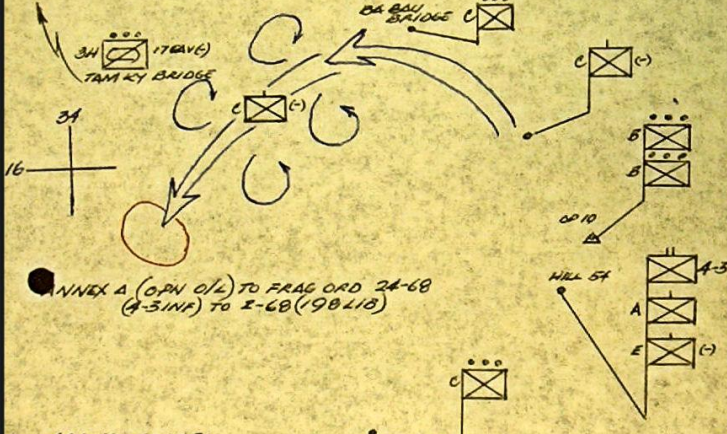 BA BAU
BRIDGE
C
3H 17CAV(-)
TAM KY BRIDGE
C (-)
C (-)
34
16
B
B
OP 10
HILL 54
4-3
A
E (-)
ANNEX A (OPN O/L) TO FRAG ORD 24-68
(4-3INF) TO 2-68 (198LIB)
C